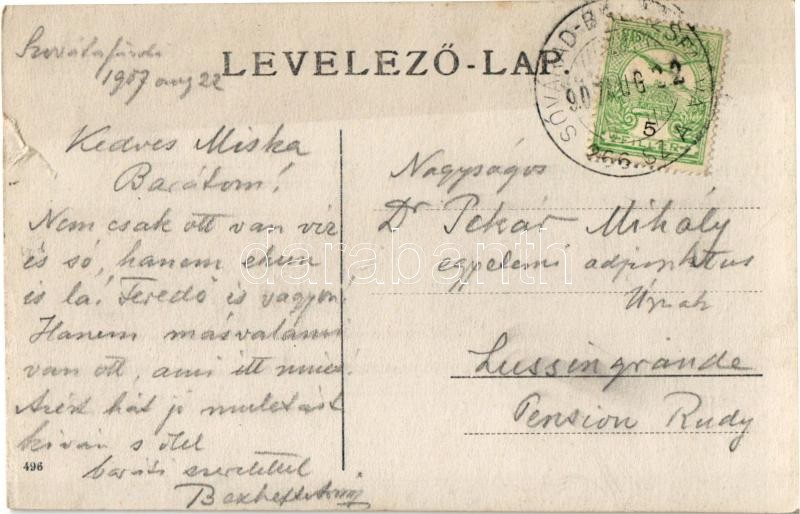 Szovátafürdő
1907 aug 22
LEVELEZŐ-LAP.
SÓVÁRAD-B
907 AUG 22
5
FILLÉR
Kedves Miska
Barátom!
Nem csak ott van víz
és só, hanem ehun
is la! Feredő is vagyon!
Hanem másvalami
van ott, ami itt nincs!
Azért hát jó mulatást
kíván s ölel
baráti szeretettel
Nagyságos
Dr Pekár Mihály
egyetemi adjunktus
Úrnak
Lussingrande
Pension Rudy
496
darabanth